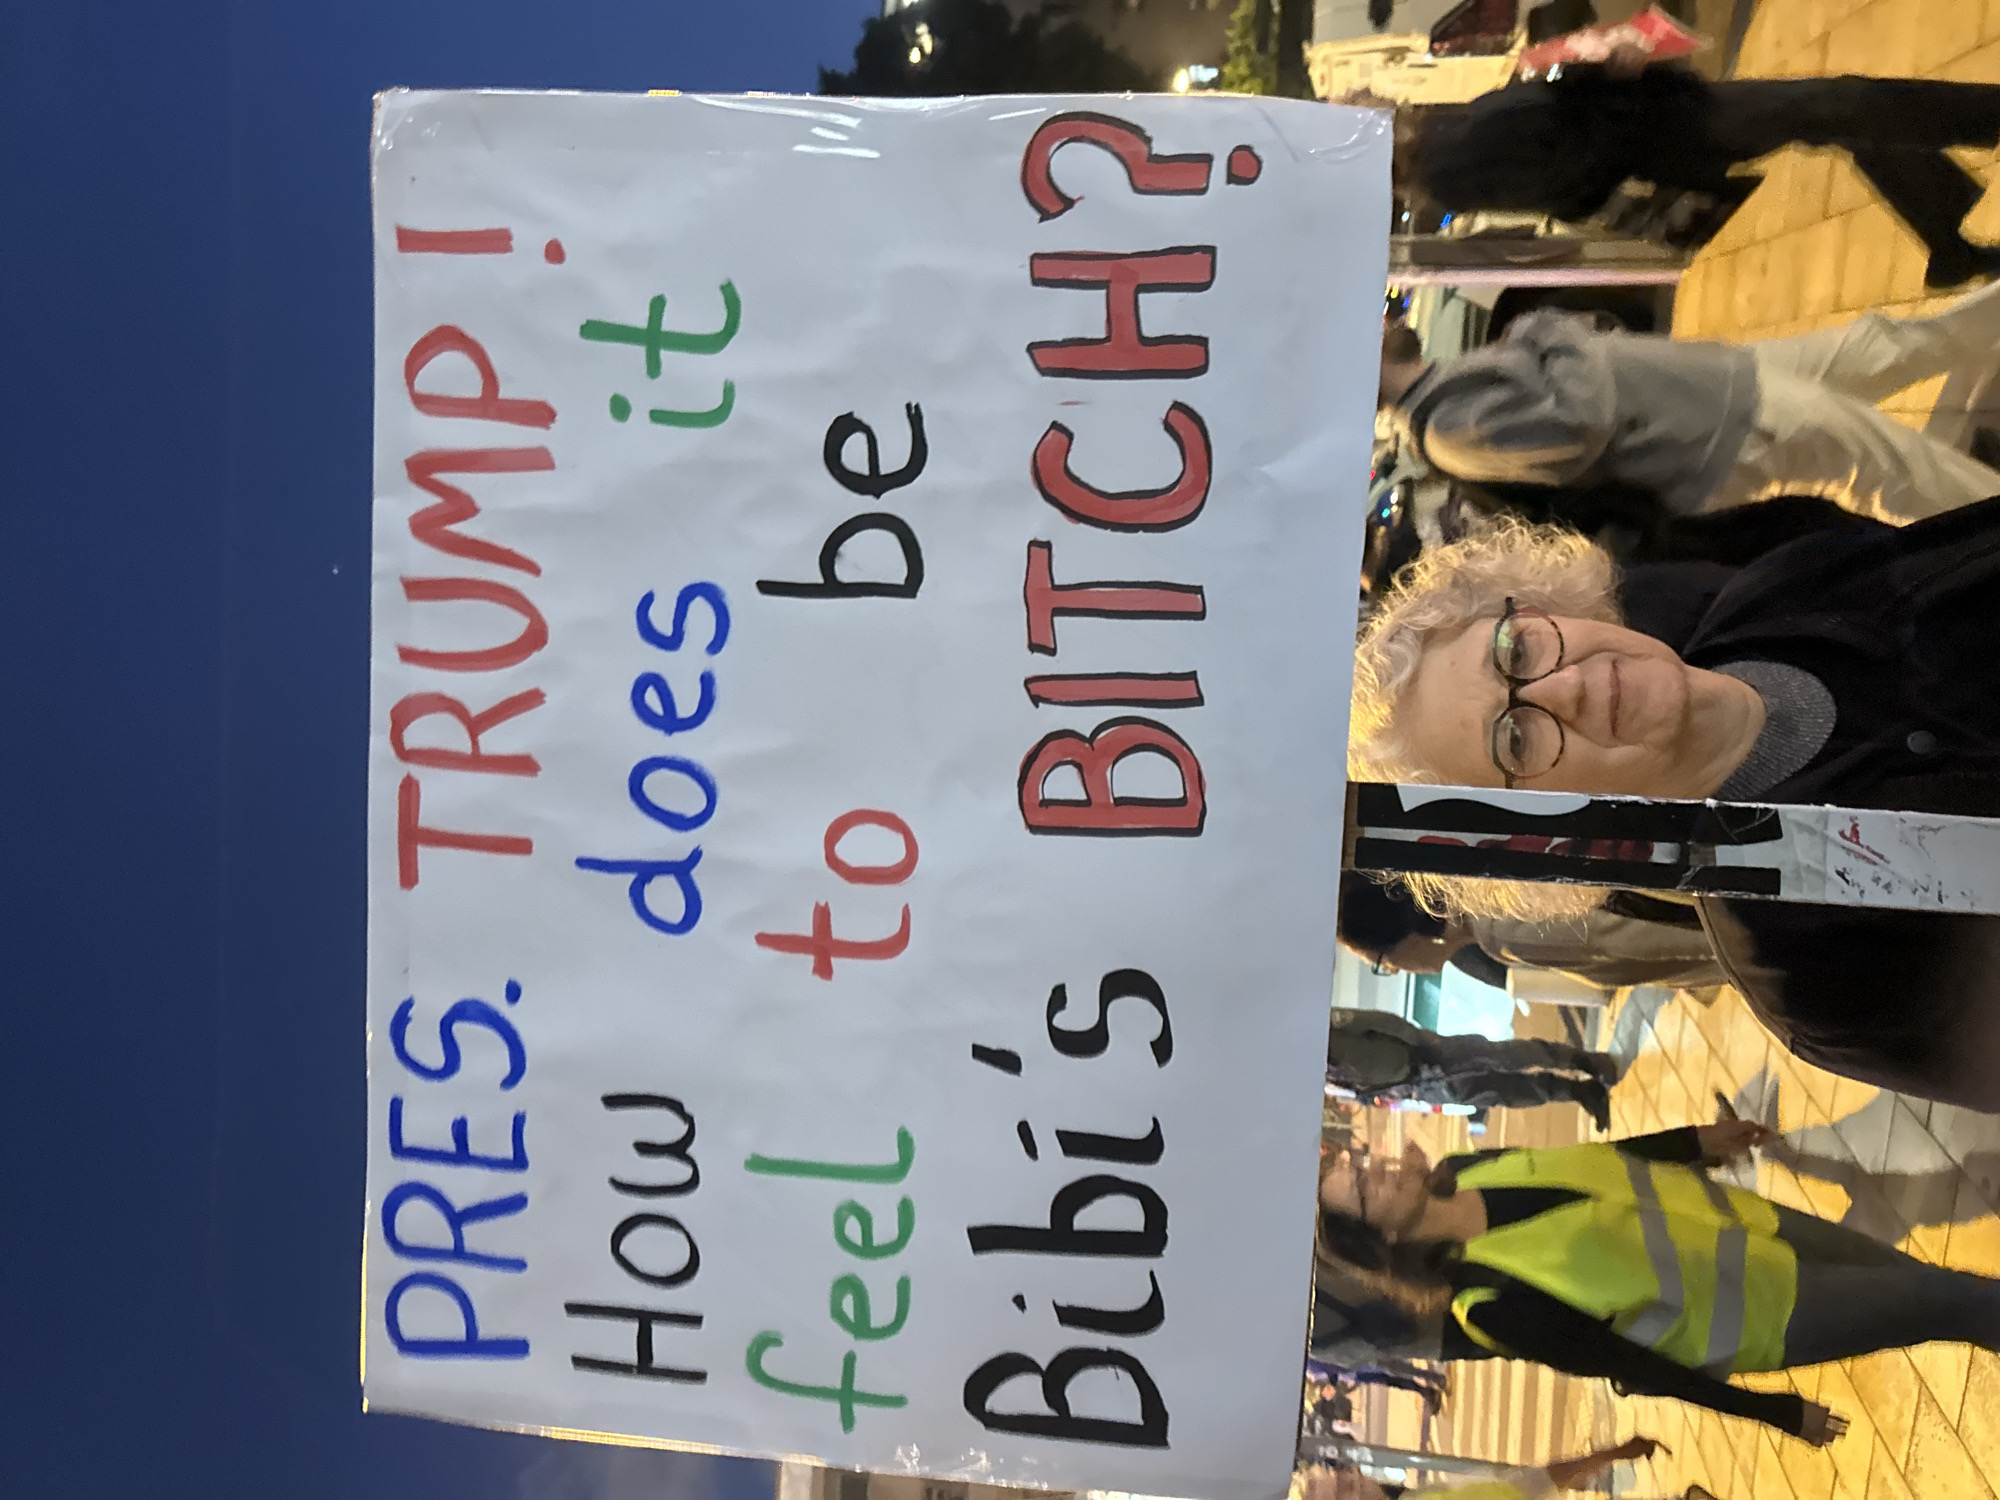 PRES. TRUMP!
How does it
feel to be
Bibi's BITCH?